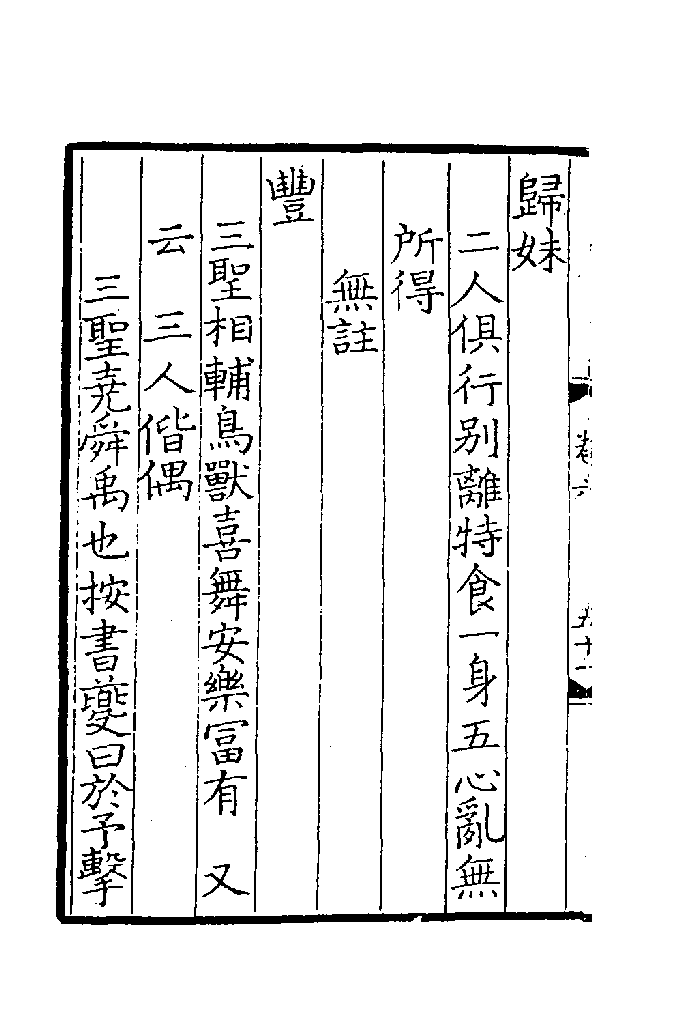 歸妹
二人俱行别離特食一身五心亂無
所得
無註
豐
三聖相輔鳥獸喜舞安樂冨有　又
云　三人偕偶
三聖堯舜禹也按書夔曰於予擊
卷六
五十一